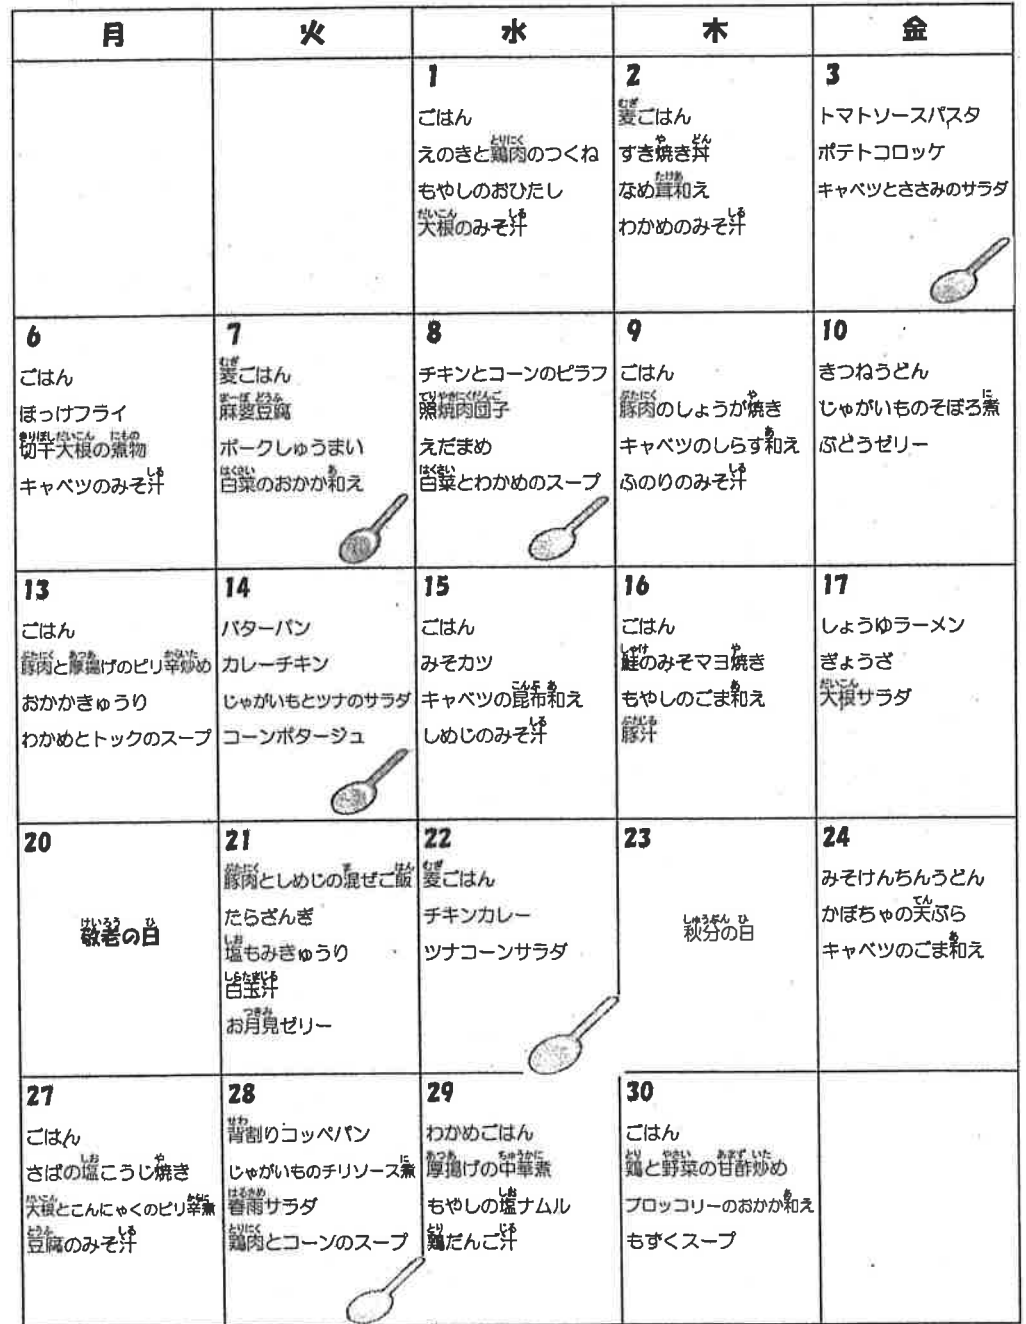 月 火 水 木 金
1
ごはん
えのきと鶏肉のつくね
もやしのおひたし
大根のみそ汁
2
麦ごはん
すき焼き丼
なめ茸和え
わかめのみそ汁
3
トマトソースパスタ
ポテトコロッケ
キャベツとささみのサラダ
6
ごはん
ほっけフライ
切干大根の煮物
キャベツのみそ汁
7
麦ごはん
麻婆豆腐
ポークしゅうまい
白菜のおかか和え
8
チキンとコーンのピラフ
照焼肉団子
えだまめ
白菜とわかめのスープ
9
ごはん
豚肉のしょうが焼き
キャベツのしらす和え
ふのりのみそ汁
10
きつねうどん
じゃがいものそぼろ煮
ぶどうゼリー
13
ごはん
豚肉と厚揚げのピリ辛炒め
おかかきゅうり
わかめとトックのスープ
14
バターパン
カレーチキン
じゃがいもとツナのサラダ
コーンポタージュ
15
ごはん
みそカツ
キャベツの昆布和え
しめじのみそ汁
16
ごはん
鮭のみそマヨ焼き
もやしのごま和え
豚汁
17
しょうゆラーメン
ぎょうざ
大根サラダ
20
敬老の日
21
豚肉としめじの混ぜご飯
たらざんぎ
塩もみきゅうり
白玉汁
お月見ゼリー
22
麦ごはん
チキンカレー
ツナコーンサラダ
23
秋分の日
24
みそけんちんうどん
かぼちゃの天ぷら
キャベツのごま和え
27
ごはん
さばの塩こうじ焼き
大根とこんにゃくのピリ辛煮
豆腐のみそ汁
28
背割りコッペパン
じゃがいものチリソース煮
春雨サラダ
鶏肉とコーンのスープ
29
わかめごはん
厚揚げの中華煮
もやしの塩ナムル
鶏だんご汁
30
ごはん
鶏と野菜の甘酢炒め
ブロッコリーのおかか和え
もずくスープ